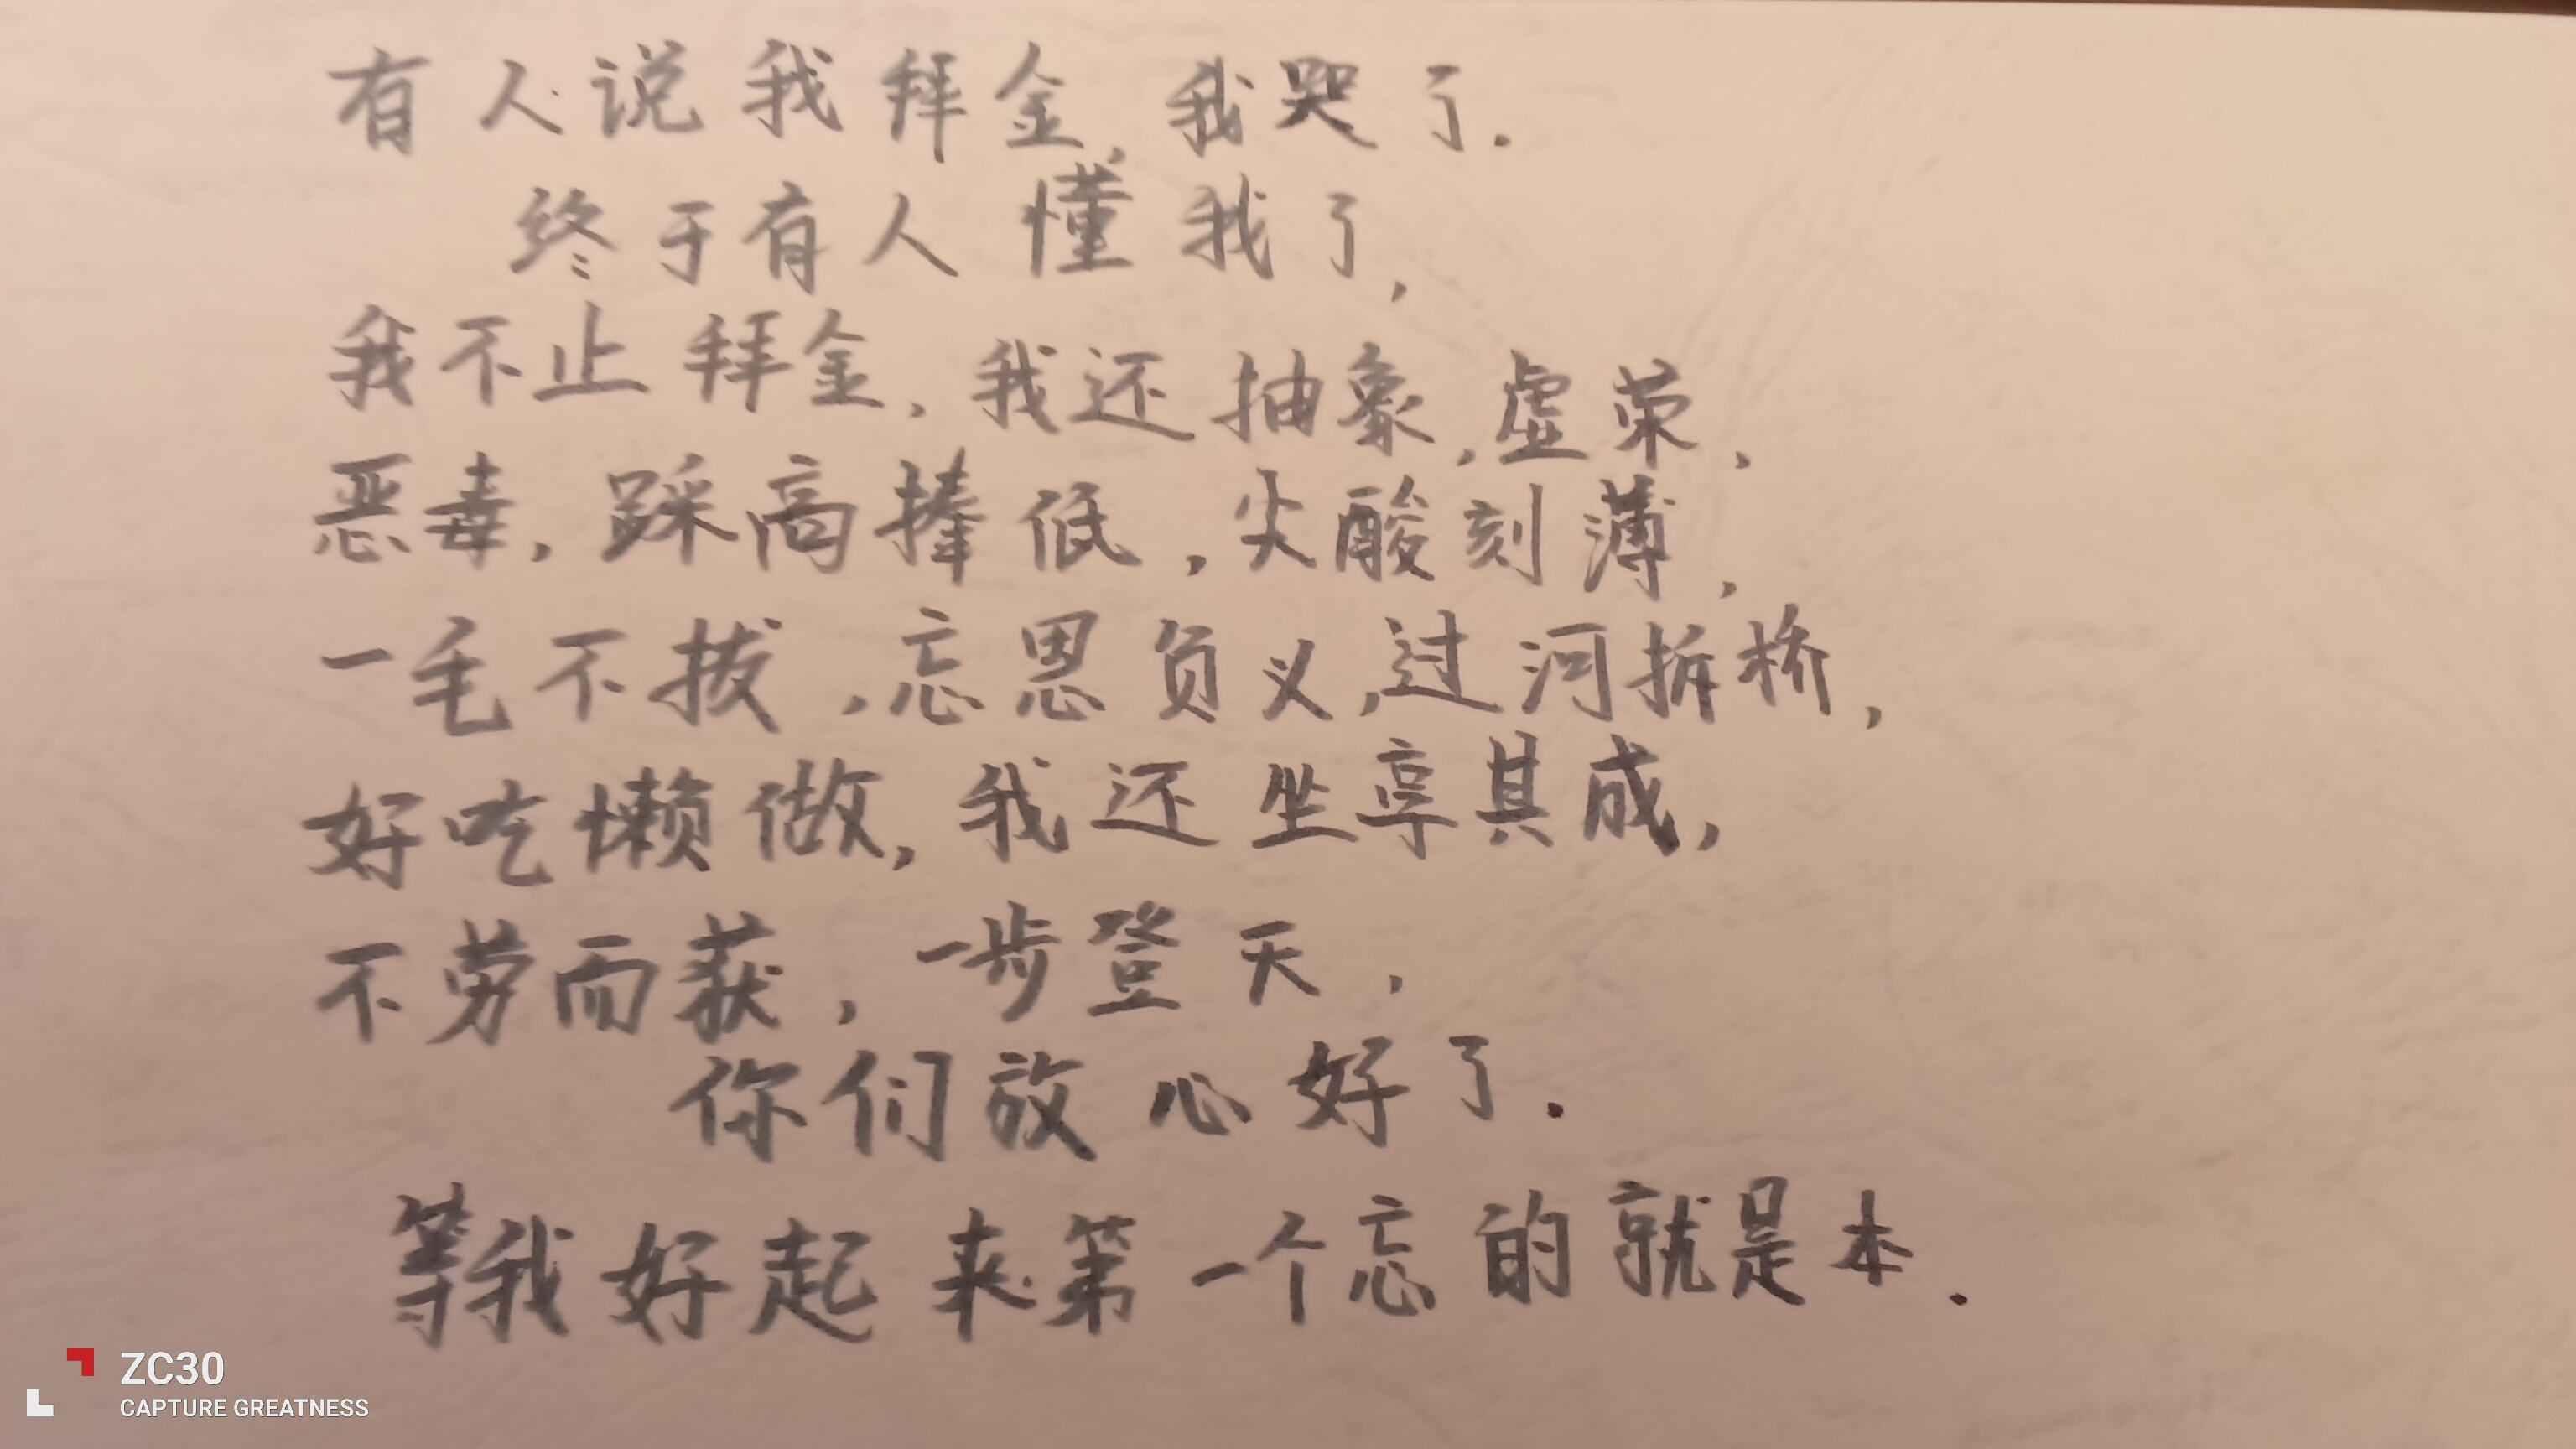 有人说我拜金,我哭了.
终于有人懂我了,
我不止拜金,我还抽象,虚荣,
恶毒,踩高捧低,尖酸刻薄,
一毛不拔,忘恩负义,过河拆桥,
好吃懒做,我还坐享其成,
不劳而获,一步登天,
你们放心好了.
等我好起来第一个忘的就是本.
ZC30
CAPTURE GREATNESS